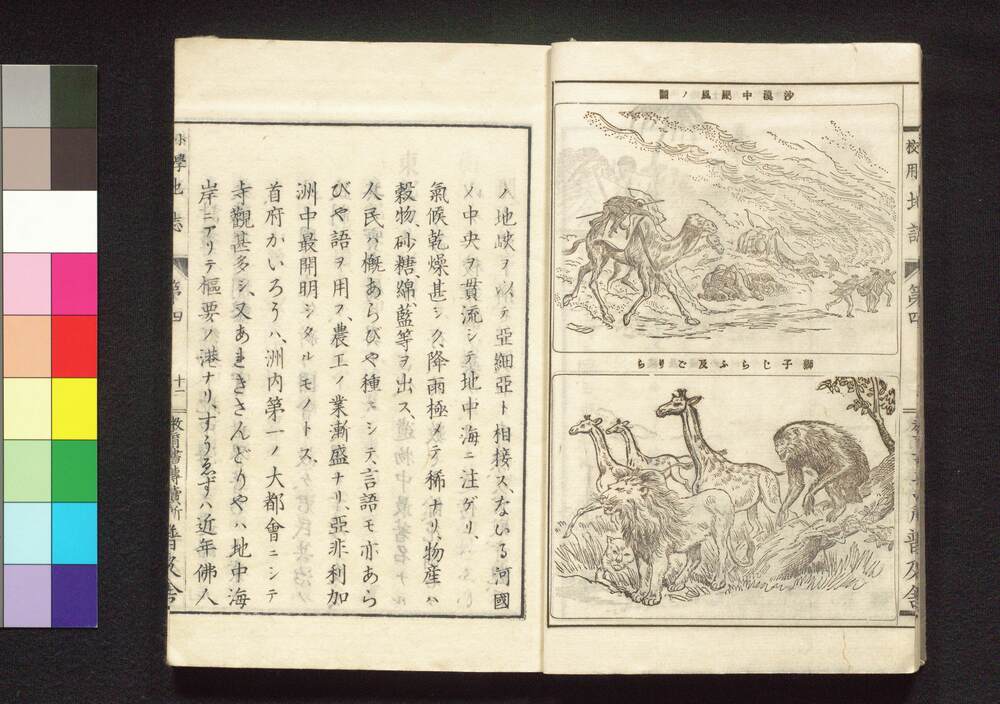 校用 地誌 第四
普及舍
沙漠中颶風ノ圖
獅子じらふ及ごりら
ノ地峽ヲ以テ亞細亞ト相接ス、ないる河國
ノ中央ヲ貫流シテ地中海ニ注ゲリ、
氣候乾燥甚シク、降雨極メテ稀ナリ、物産ハ
穀物、砂糖、綿、藍等ヲ出ス、
人民ハ概あらびや種ニシテ、言語モ亦あら
びや語ヲ用フ、農工ノ業漸盛ナリ、亞非利加
洲中最開明シタルモノトス、
首府かいろうハ、洲内第一ノ大都會ニシテ
寺觀甚多シ、又あれきさんどりやハ地中海
岸ニアリテ樞要ノ港ナリ、すうゑずハ近年佛人
小學地誌 第四 十一 普及舍